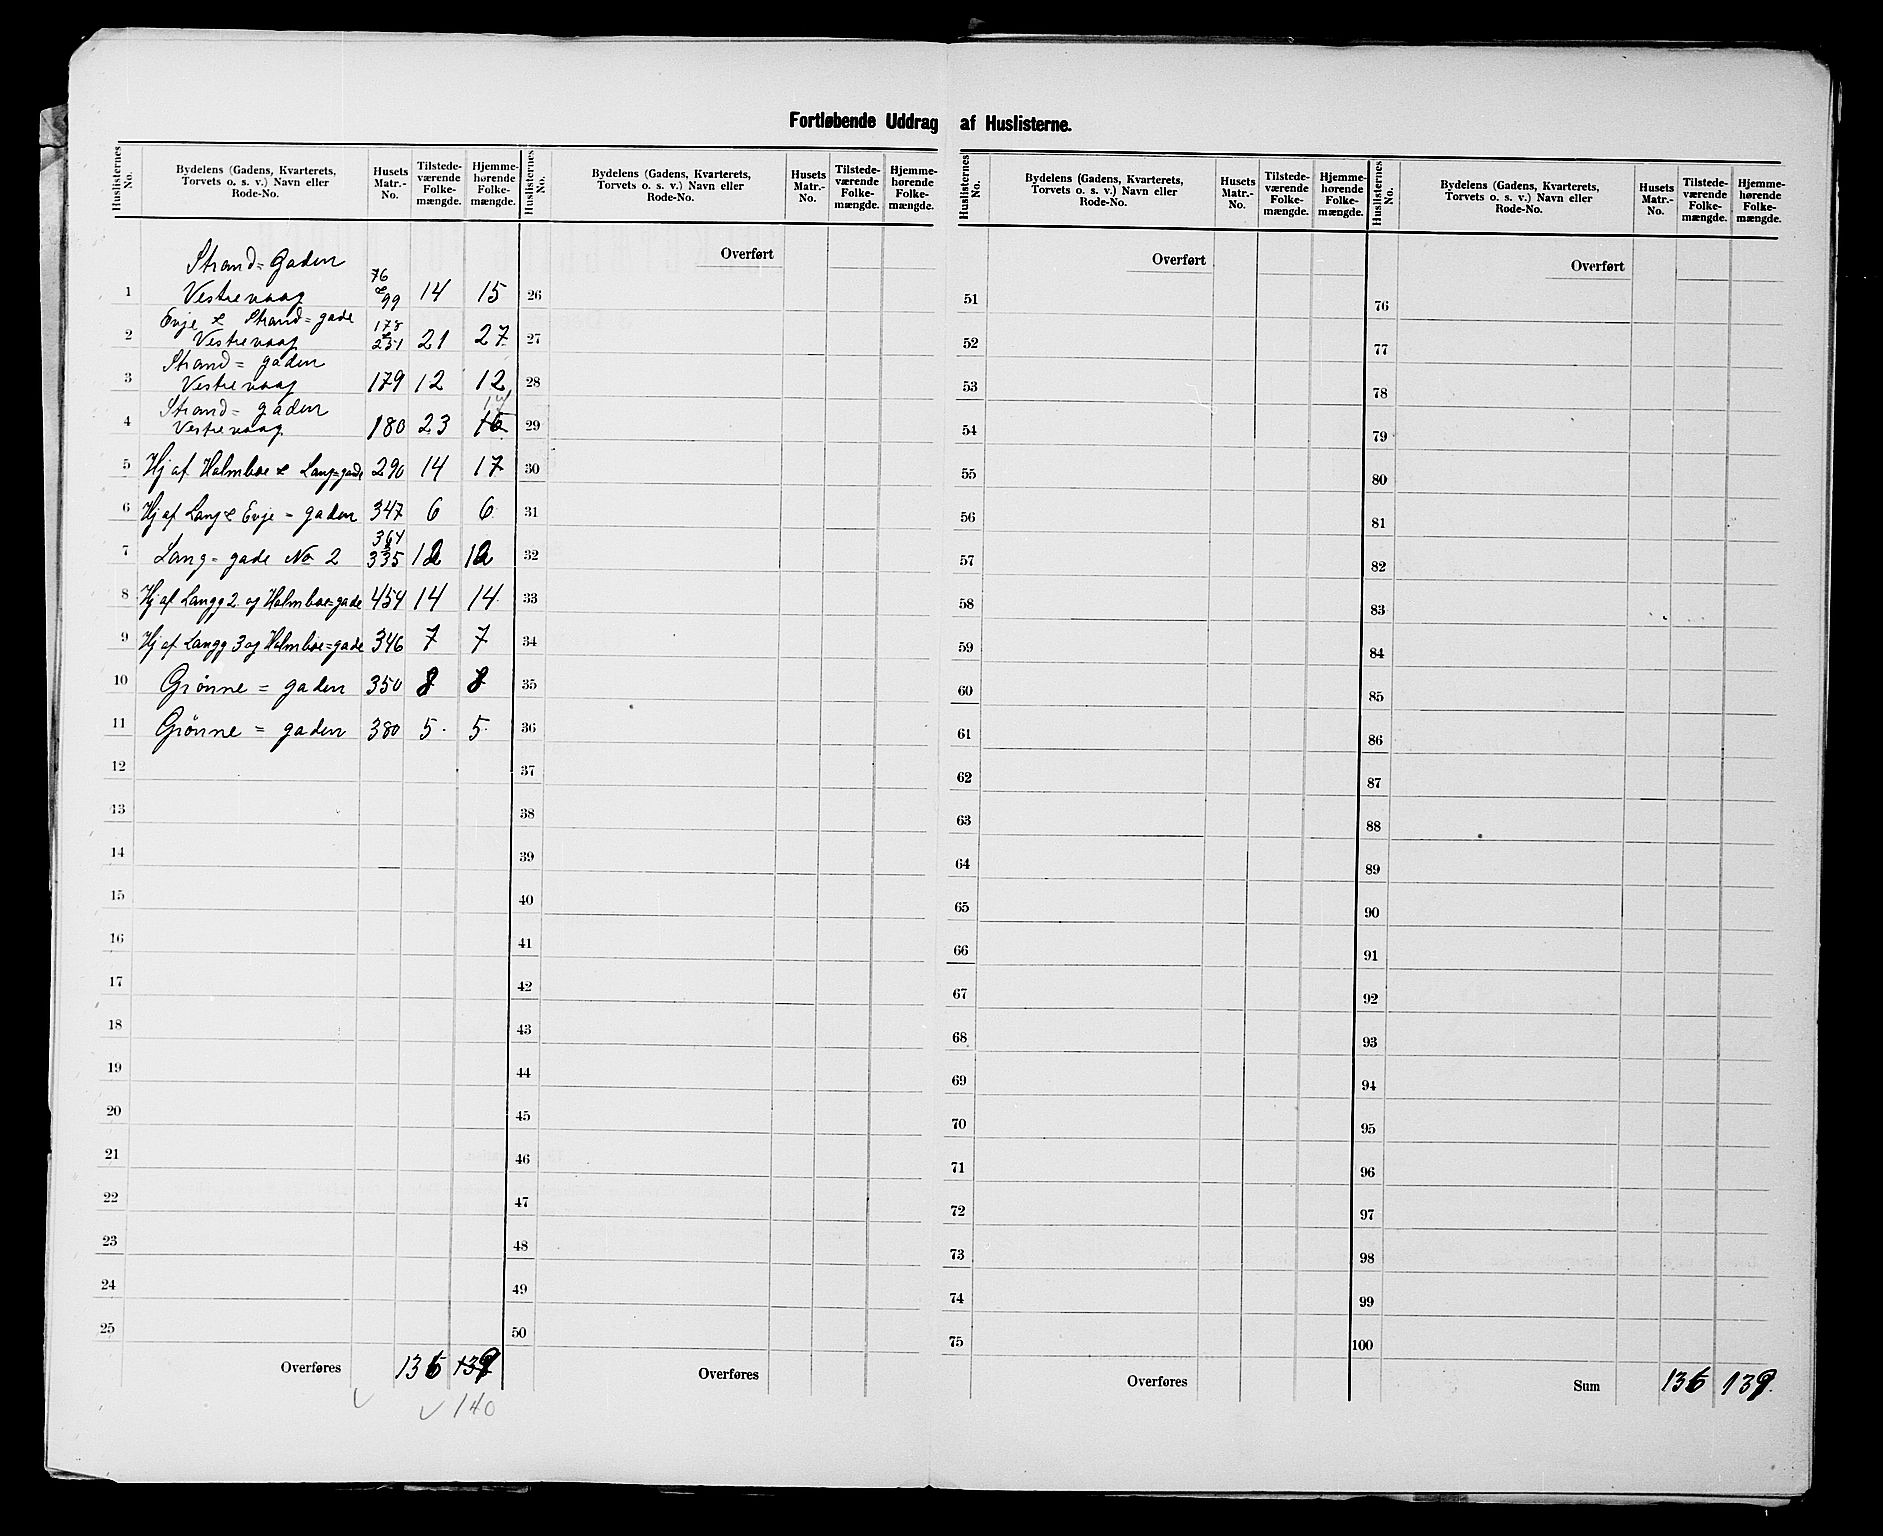 Fortløbende Uddrag af Huslisterne.
Huslisternes No. | Bydelens (Gadens, Kvarterets, Torvets o. s. v.) Navn eller Rode-No. | Husets Matr.-No. | Tilstede-værende Folke-mængde. | Hjemme-hørende Folke-mængde.
Huslisternes No. | Bydelens (Gadens, Kvarterets, Torvets o. s. v.) Navn eller Rode-No. | Husets Matr.-No. | Tilstede-værende Folke-mængde. | Hjemme-hørende Folke-mængde.
Huslisternes No. | Bydelens (Gadens, Kvarterets, Torvets o. s. v.) Navn eller Rode-No. | Husets Matr.-No. | Tilstede-værende Folke-mængde. | Hjemme-hørende Folke-mængde.
Huslisternes No. | Bydelens (Gadens, Kvarterets, Torvets o. s. v.) Navn eller Rode-No. | Husets Matr.-No. | Tilstede-værende Folke-mængde. | Hjemme-hørende Folke-mængde.
Strand=Gaden 76
1 Vestrevaag & 99 14 15
Evje & Strand=gade 178
2 Vestrevaag & 251 21 27
Strand=gaden
3 Vestrevaag 179 12 12
Strand=gaden 17
4 Vestrevaag 180 23 16
5 Hj af Holmboe & Lang=gade 290 14 17
6 Hj af Lang & Evje=gaden 347 6 6
364
7 Lang=gade No 2 335 12 12
8 Hj af Langg 2 og Holmboe=gade 454 14 14
9 Hj af Langg 3 og Holmboe=gade 346 7 7
10 Grønne=gaden 350 8 8
11 Grönne=gaden 380 5 5
12
13
14
15
16
17
18
19
20
21
22
23
24
25
Overføres 136 139
140
Overført
26
27
28
29
30
31
32
33
34
35
36
37
38
39
40
41
42
43
44
45
46
47
48
49
50
Overføres
Overført
51
52
53
54
55
56
57
58
59
60
61
62
63
64
65
66
67
68
69
70
71
72
73
74
75
Overføres
Overført
76
77
78
79
80
81
82
83
84
85
86
87
88
89
90
91
92
93
94
95
96
97
98
99
100
Sum 136 139.